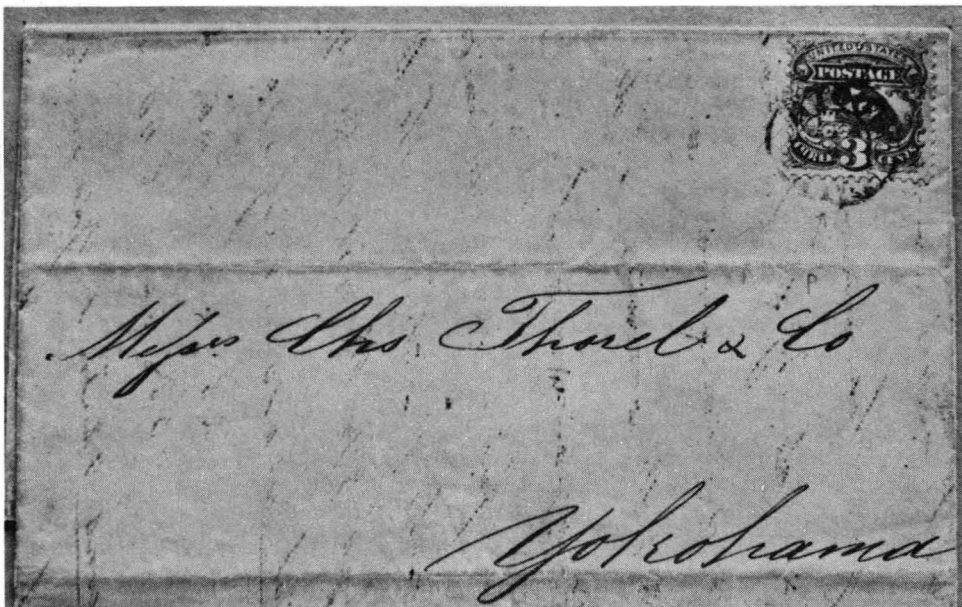 UNITED STATES
POSTAGE
3
Messrs Chs Thorel & Co
Yokohama